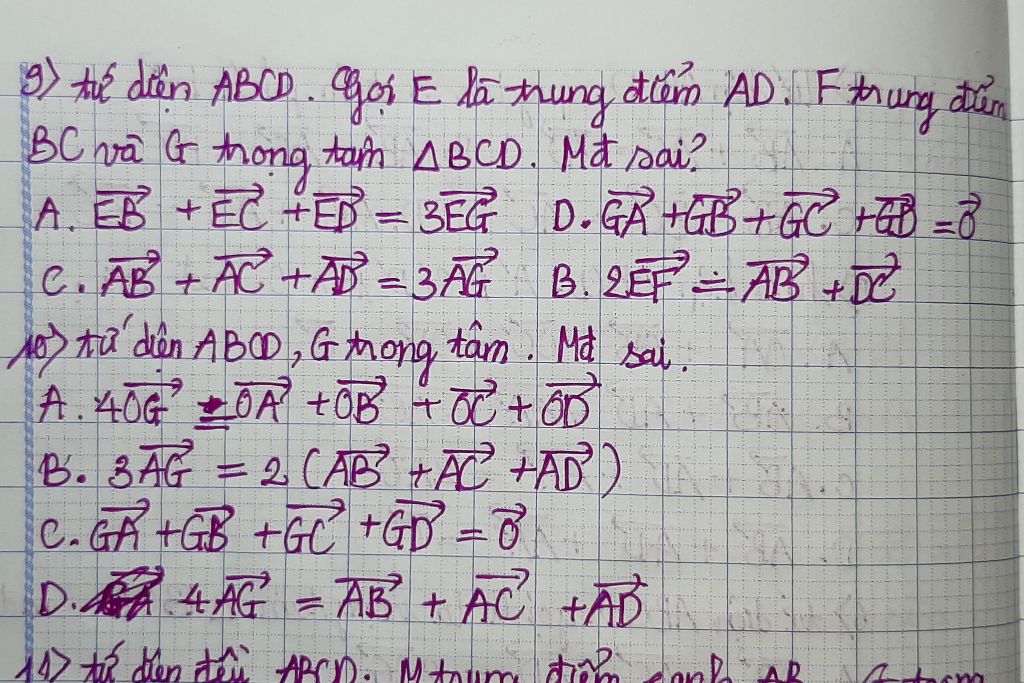 9) tứ diện ABCD. Gọi E là trung điểm AD. F trung điểm
BC và G trọng tâm ΔBCD. Mđ sai?
A. $\overrightarrow{EB} + \overrightarrow{EC} + \overrightarrow{ED} = 3\overrightarrow{EG}$ D. $\overrightarrow{GA} + \overrightarrow{GB} + \overrightarrow{GC} + \overrightarrow{GD} = \vec{0}$
C. $\overrightarrow{AB} + \overrightarrow{AC} + \overrightarrow{AD} = 3\overrightarrow{AG}$ B. $2\overrightarrow{EF} = \overrightarrow{AB} + \overrightarrow{DC}$
10) tứ diện ABCD, G trọng tâm. Mđ sai.
A. $4\overrightarrow{OG} = \overrightarrow{OA} + \overrightarrow{OB} + \overrightarrow{OC} + \overrightarrow{OD}$
B. $3\overrightarrow{AG} = 2(\overrightarrow{AB} + \overrightarrow{AC} + \overrightarrow{AD})$
C. $\overrightarrow{GA} + \overrightarrow{GB} + \overrightarrow{GC} + \overrightarrow{GD} = \vec{0}$
D. $4\overrightarrow{AG} = \overrightarrow{AB} + \overrightarrow{AC} + \overrightarrow{AD}$
11) tứ diện đều ABCD. M trung điểm cạnh AB